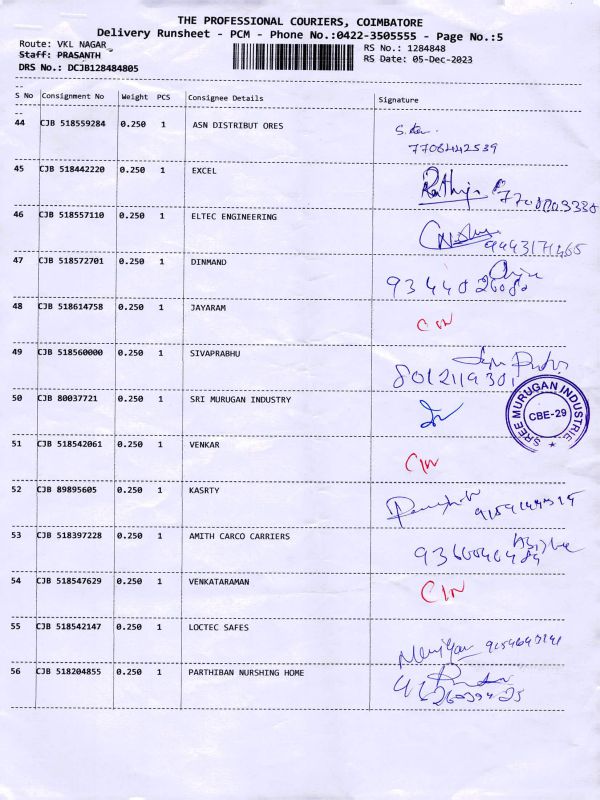 THE PROFESSIONAL COURIERS, COIMBATORE
Delivery Runsheet - PCM - Phone No.:0422-3505555 - Page No.:5
Route: VKL NAGAR RS No.: 1284848
Staff: PRASANTH RS Date: 05-Dec-2023
DRS No.: DCJB128484805
S No Consignment No Weight PCS Consignee Details Signature
44 CJB 518559284 0.250 1 ASN DISTRIBUT ORES
7708442539
45 CJB 518442220 0.250 1 EXCEL
46 CJB 518557110 0.250 1 ELTEC ENGINEERING
9443171465
47 CJB 518572701 0.250 1 DINMAND
48 CJB 518614758 0.250 1 JAYARAM
49 CJB 518560000 0.250 1 SIVAPRABHU
8012119301
50 CJB 80037721 0.250 1 SRI MURUGAN INDUSTRY
SREE MURUGAN INDUSTRIE
CBE-29
51 CJB 518542061 0.250 1 VENKAR
52 CJB 89895605 0.250 1 KASRTY
53 CJB 518397228 0.250 1 AMITH CARCO CARRIERS
54 CJB 518547629 0.250 1 VENKATARAMAN
55 CJB 518542147 0.250 1 LOCTEC SAFES
56 CJB 518204855 0.250 1 PARTHIBAN NURSHING HOME